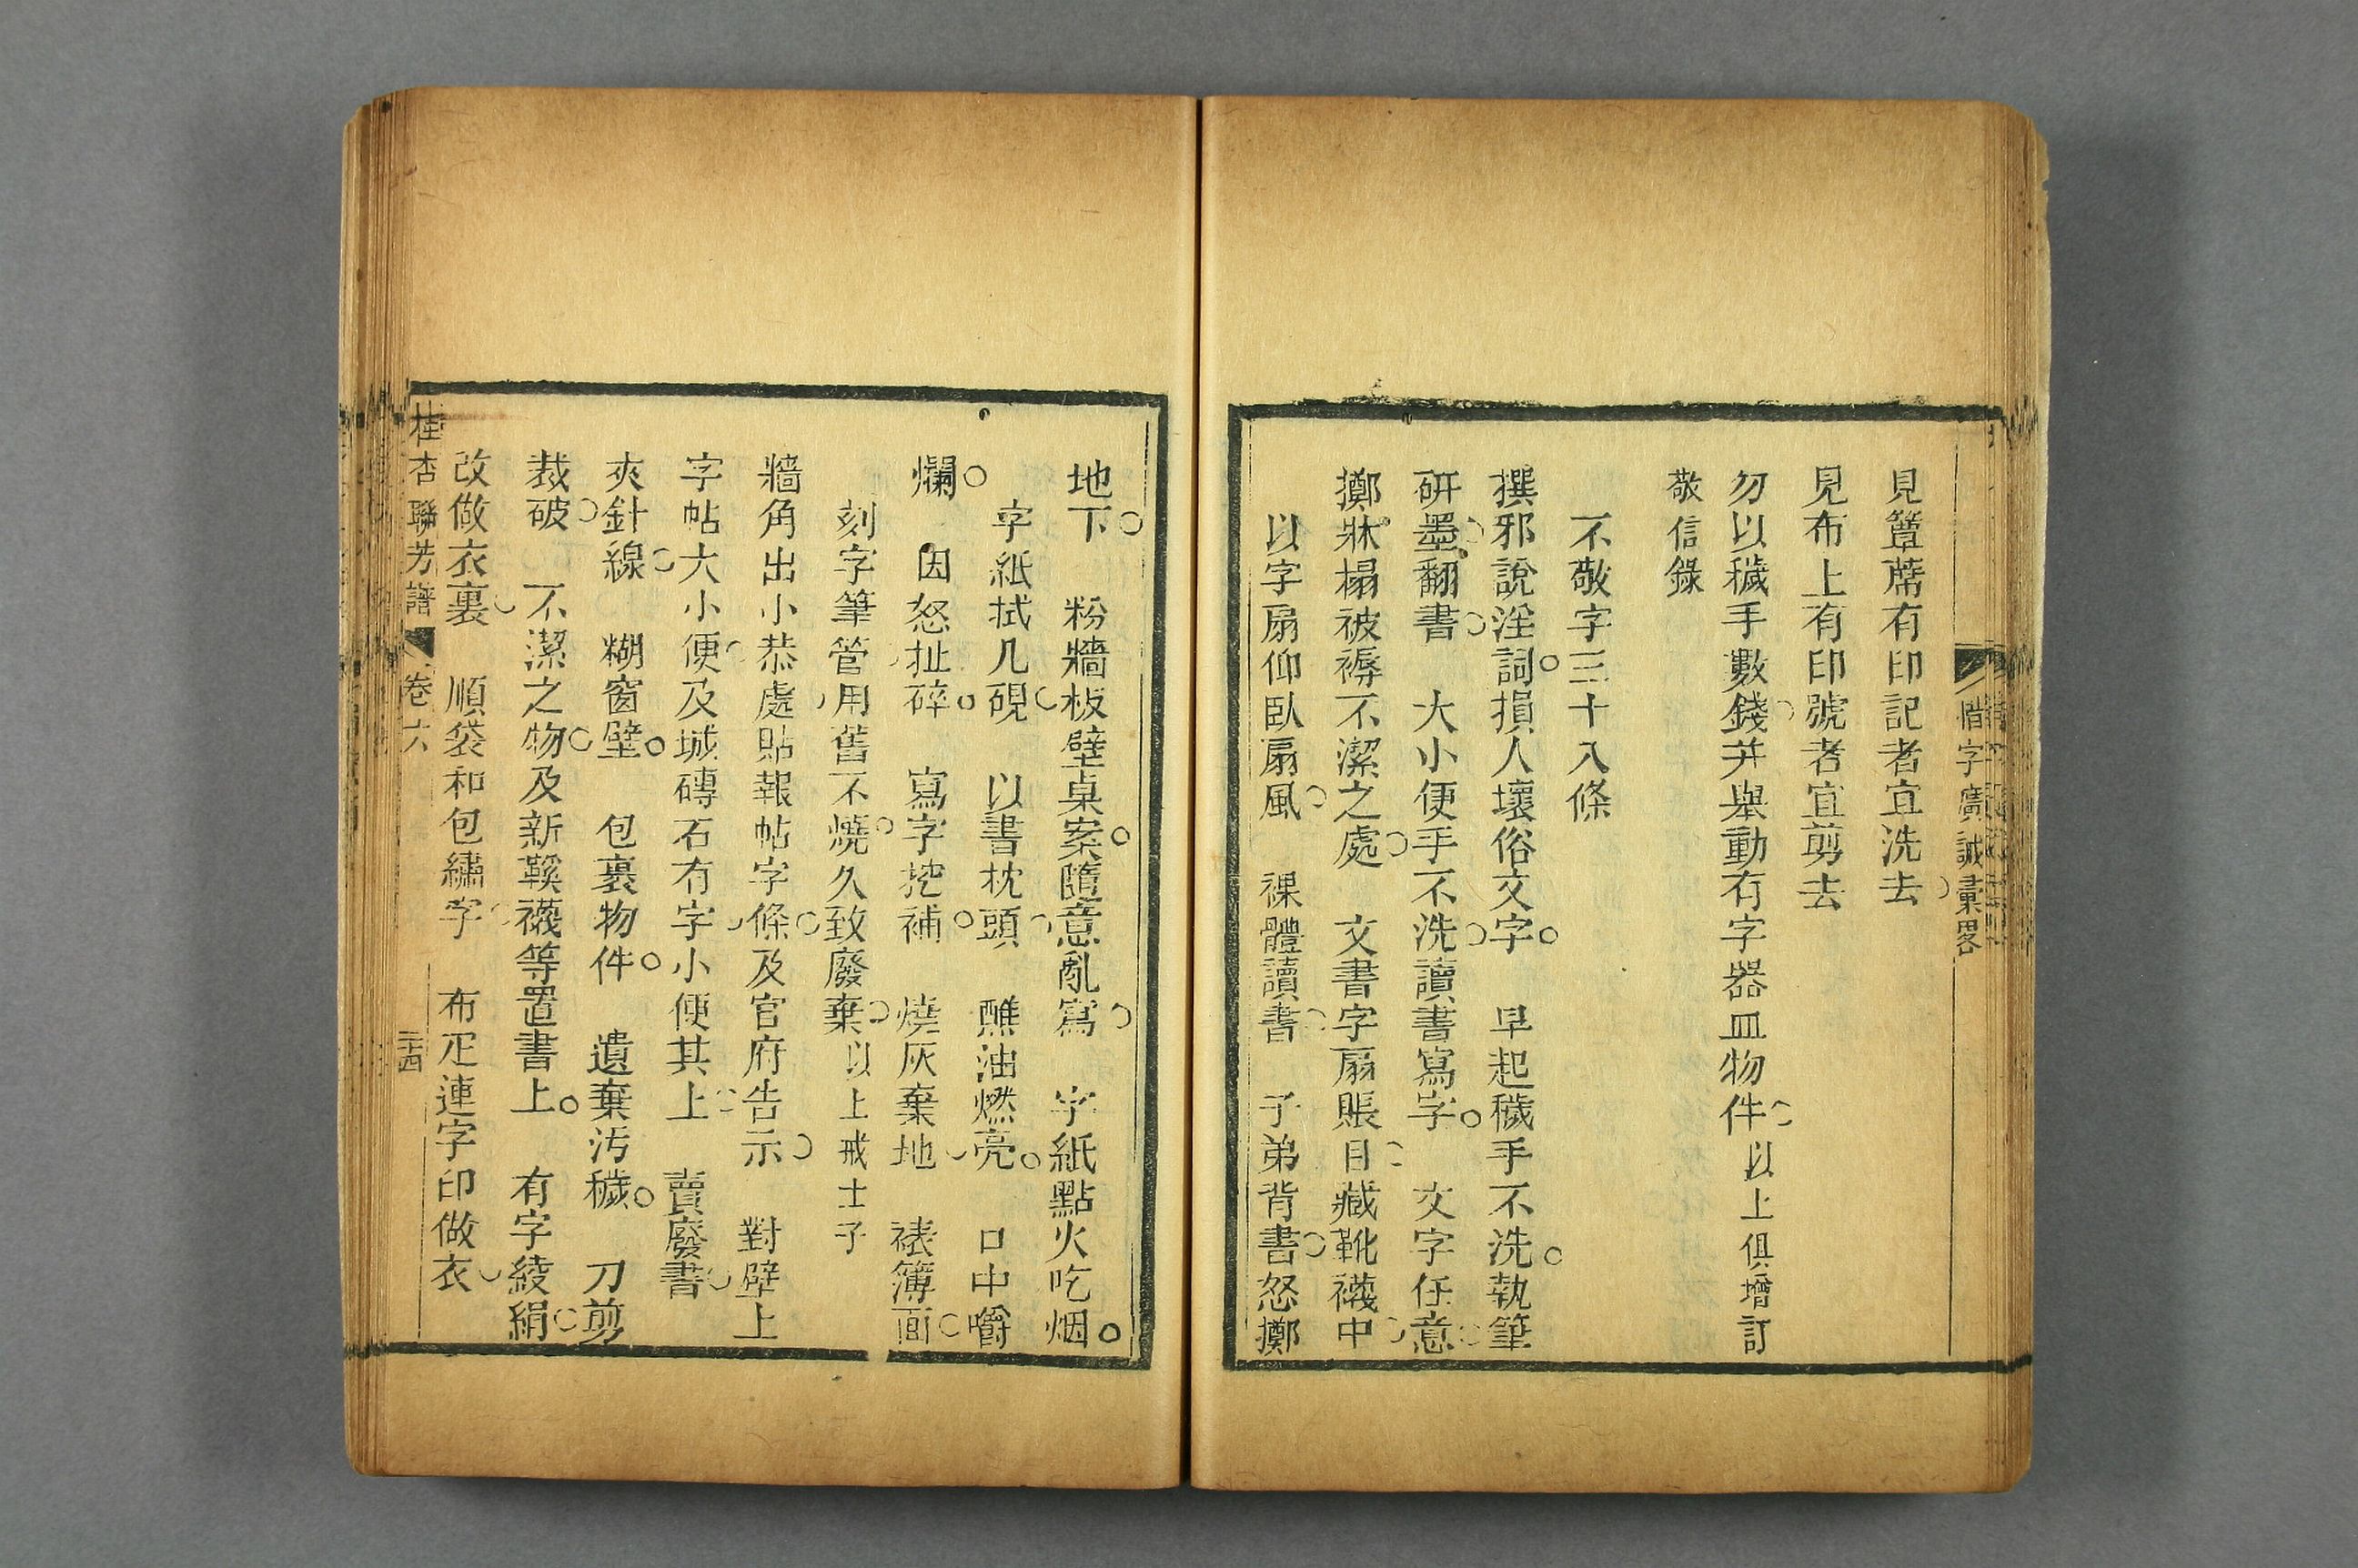 惜字廣誡彙畧
見簟蓆有印記者宜洗去
見布上有印號者宜剪去
勿以穢手數錢并舉動有字器皿物件以上俱增訂
敬信錄
不敬字三十八條
撰邪說淫詞損人壞俗文字　早起穢手不洗執筆
研墨翻書　大小便手不洗讀書寫字　文字任意
擲牀榻被褥不潔之處　文書字扇賬目藏靴襪中
以字扇仰臥扇風　裸體讀書　子弟背書怒擲
地下　粉牆板壁桌案隨意亂寫　字紙點火吃烟
字紙拭几硯　以書枕頭　醮油燃亮　口中嚼
爛　因怒扯碎　寫字挖補　燒灰棄地　裱簿面
刻字筆管用舊不燒久致廢棄以上戒士子
牆角出小恭處貼報帖字條及官府告示　對壁上
字帖大小便及城磚石有字小便其上　賣廢書
夾針線　糊窗壁　包裹物件　遺棄污穢　刀剪
裁破　不潔之物及新鞵襪等置書上　有字綾絹
改做衣裏　順袋和包繡字　布疋連字印做衣
桂杏聯芳譜　卷六　三十四